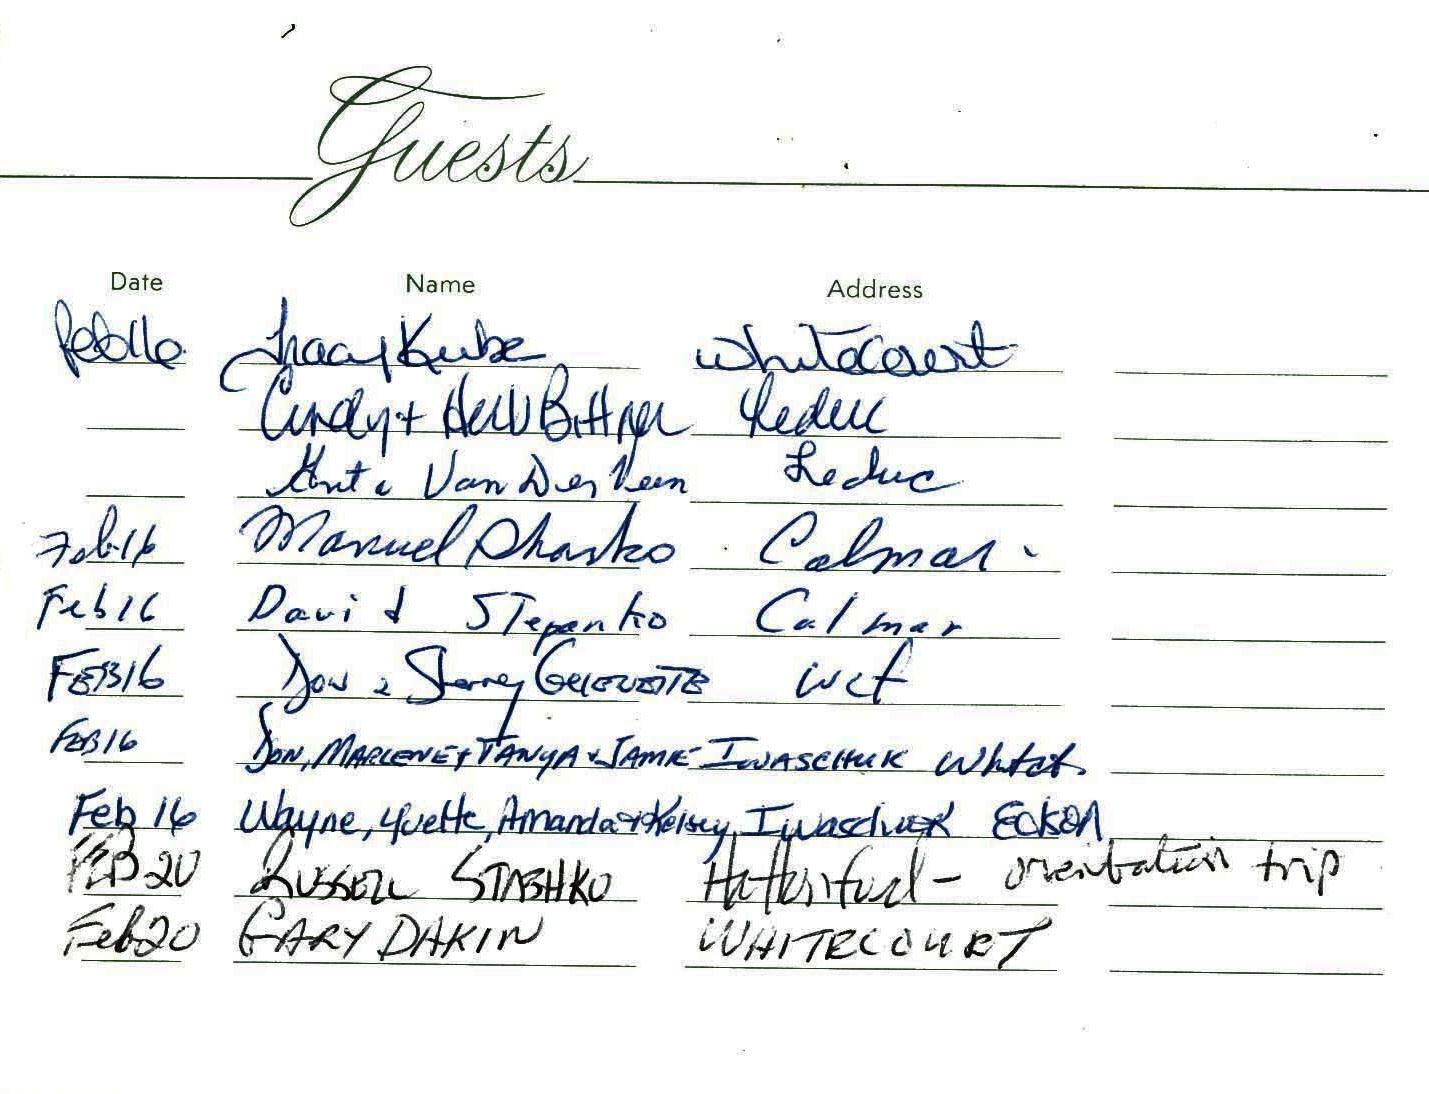 Guests
Date Name Address
Feb 16 Tracy Kube Whitecourt
Cindy + Herb Bittner Leduc
Anita Van Der Veen Leduc
Feb. 16 Manuel Shasko Calmar
Feb 16 David Stepanko Calmar
FEB 16 Don & Sherrey WCT
FEB 16 DON, MARLENE + TANYA + JAMIE IWASCHUK Whitct.
Feb 16 Wayne, Yvette, Amanda & Kelsey Iwaschuk
FEB 20 RUSSELL STASHKO - orientation trip
Feb 20 GARY DAKIN WHITECOURT